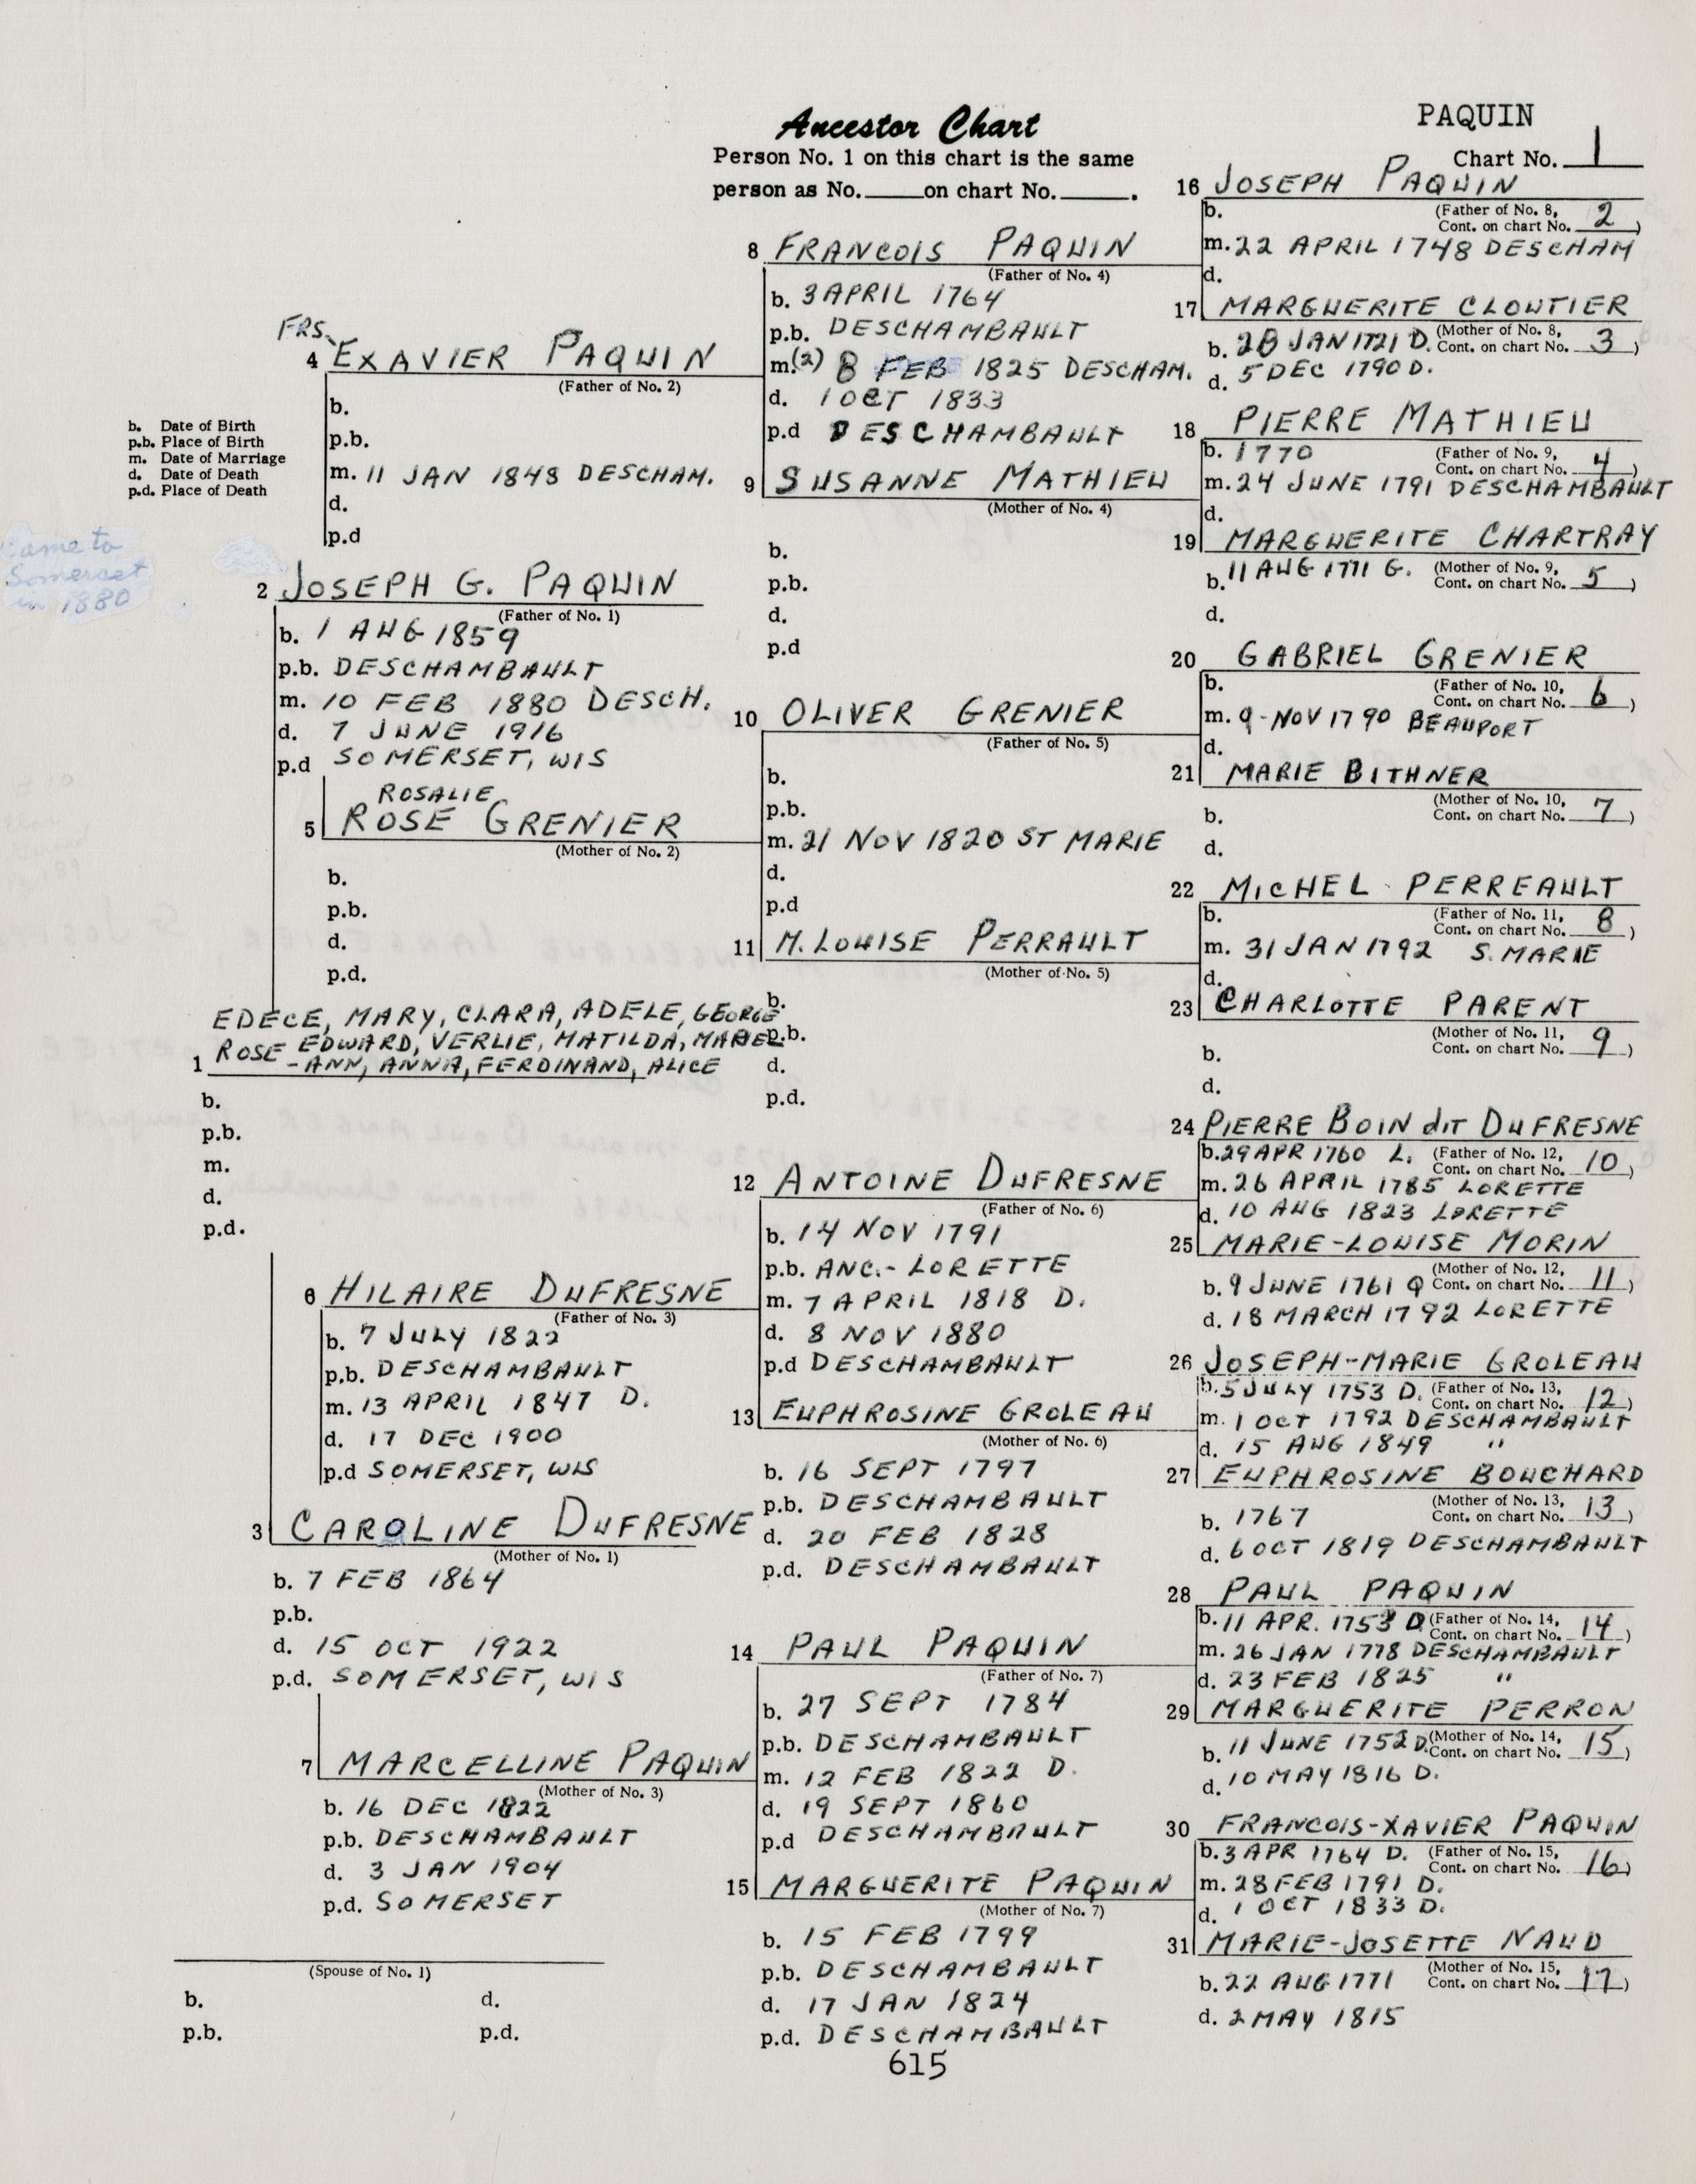 PAQUIN
Ancestor Chart
Person No. 1 on this chart is the same
person as No.____on chart No.______.
Chart No. 1
b. Date of Birth
p.b. Place of Birth
m. Date of Marriage
d. Date of Death
p.d. Place of Death
Came to
Somerset
in 1880
FRS.
4 EXAVIER PAQUIN
(Father of No. 2)
b.
p.b.
m. 11 JAN 1848 DESCHAM.
d.
p.d
2 JOSEPH G. PAQUIN
(Father of No. 1)
b. 1 AUG 1859
p.b. DESCHAMBAULT
m. 10 FEB 1880 DESCH.
d. 7 JUNE 1916
p.d SOMERSET, WIS
ROSALIE
5 ROSE GRENIER
(Mother of No. 2)
b.
p.b.
d.
p.d.
EDECE, MARY, CLARA, ADELE, GEORGE
ROSE EDWARD, VERLIE, MATILDA, MABEL
1 -ANN, ANNA, FERDINAND, ALICE
b.
p.b.
m.
d.
p.d.
6 HILAIRE DUFRESNE
(Father of No. 3)
b. 7 JULY 1822
p.b. DESCHAMBAULT
m. 13 APRIL 1847 D.
d. 17 DEC 1900
p.d SOMERSET, WIS
3 CAROLINE DUFRESNE
(Mother of No. 1)
b. 7 FEB 1864
p.b.
d. 15 OCT 1922
p.d. SOMERSET, WIS
7 MARCELLINE PAQUIN
(Mother of No. 3)
b. 16 DEC 1822
p.b. DESCHAMBAULT
d. 3 JAN 1904
p.d. SOMERSET
(Spouse of No. 1)
b. d.
p.b. p.d.
8 FRANCOIS PAQUIN
(Father of No. 4)
b. 3 APRIL 1764
p.b. DESCHAMBAULT
m.(2) 8 FEB 1825 DESCHAM.
d. 1 OCT 1833
p.d DESCHAMBAULT
9 SUSANNE MATHIEU
(Mother of No. 4)
b.
p.b.
d.
p.d
10 OLIVER GRENIER
(Father of No. 5)
b.
p.b.
m. 21 NOV 1820 ST MARIE
d.
p.d
11 M. LOUISE PERRAULT
(Mother of No. 5)
b.
p.b.
d.
p.d.
12 ANTOINE DUFRESNE
(Father of No. 6)
b. 14 NOV 1791
p.b. ANC.- LORETTE
m. 7 APRIL 1818 D.
d. 8 NOV 1880
p.d DESCHAMBAULT
13 EUPHROSINE GROLEAU
(Mother of No. 6)
b. 16 SEPT 1797
p.b. DESCHAMBAULT
d. 20 FEB 1828
p.d. DESCHAMBAULT
14 PAUL PAQUIN
(Father of No. 7)
b. 27 SEPT 1784
p.b. DESCHAMBAULT
m. 12 FEB 1822 D.
d. 19 SEPT 1860
p.d DESCHAMBAULT
15 MARGUERITE PAQUIN
(Mother of No. 7)
b. 15 FEB 1799
p.b. DESCHAMBAULT
d. 17 JAN 1824
p.d. DESCHAMBAULT
16 JOSEPH PAQUIN
b. (Father of No. 8,
Cont. on chart No. 2)
m. 22 APRIL 1748 DESCHAM
d.
17 MARGUERITE CLOUTIER
b. 28 JAN 1721 D. (Mother of No. 8,
Cont. on chart No. 3)
d. 5 DEC 1790 D.
18 PIERRE MATHIEU
b. 1770 (Father of No. 9,
Cont. on chart No. 4)
m. 24 JUNE 1791 DESCHAMBAULT
d.
19 MARGUERITE CHARTRAY
b. 11 AUG 1771 G. (Mother of No. 9,
Cont. on chart No. 5)
d.
20 GABRIEL GRENIER
b. (Father of No. 10,
Cont. on chart No. 6)
m. 9-NOV 1790 BEAUPORT
d.
21 MARIE BITHNER
(Mother of No. 10,
b. Cont. on chart No. 7)
d.
22 MICHEL PERREAULT
b. (Father of No. 11,
Cont. on chart No. 8)
m. 31 JAN 1792 S. MARIE
d.
23 CHARLOTTE PARENT
(Mother of No. 11,
b. Cont. on chart No. 9)
d.
24 PIERRE BOIN dit DUFRESNE
b. 29 APR 1760 L. (Father of No. 12,
Cont. on chart No. 10)
m. 26 APRIL 1785 LORETTE
d. 10 AUG 1823 LORETTE
25 MARIE-LOUISE MORIN
(Mother of No. 12,
b. 9 JUNE 1761 Q Cont. on chart No. 11)
d. 18 MARCH 1792 LORETTE
26 JOSEPH-MARIE GROLEAU
b. 5 JULY 1753 D. (Father of No. 13,
Cont. on chart No. 12)
m. 1 OCT 1792 DESCHAMBAULT
d. 15 AUG 1849 "
27 EUPHROSINE BOUCHARD
(Mother of No. 13,
b. 1767 Cont. on chart No. 13)
d. 6 OCT 1819 DESCHAMBAULT
28 PAUL PAQUIN
b. 11 APR. 1753 D (Father of No. 14,
Cont. on chart No. 14)
m. 26 JAN 1778 DESCHAMBAULT
d. 23 FEB 1825 "
29 MARGUERITE PERRON
b. 11 JUNE 1752 D. (Mother of No. 14,
Cont. on chart No. 15)
d. 10 MAY 1816 D.
30 FRANCOIS-XAVIER PAQUIN
b. 3 APR 1764 D. (Father of No. 15,
Cont. on chart No. 16)
m. 28 FEB 1791 D.
d. 1 OCT 1833 D.
31 MARIE-JOSETTE NAUD
(Mother of No. 15,
b. 22 AUG 1771 Cont. on chart No. 17)
d. 2 MAY 1815
615